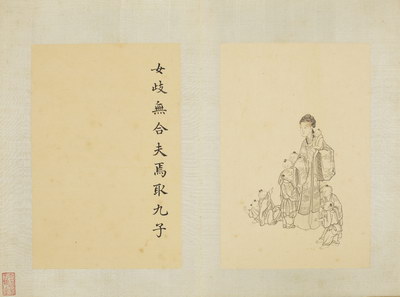 女歧無合夫焉取九子